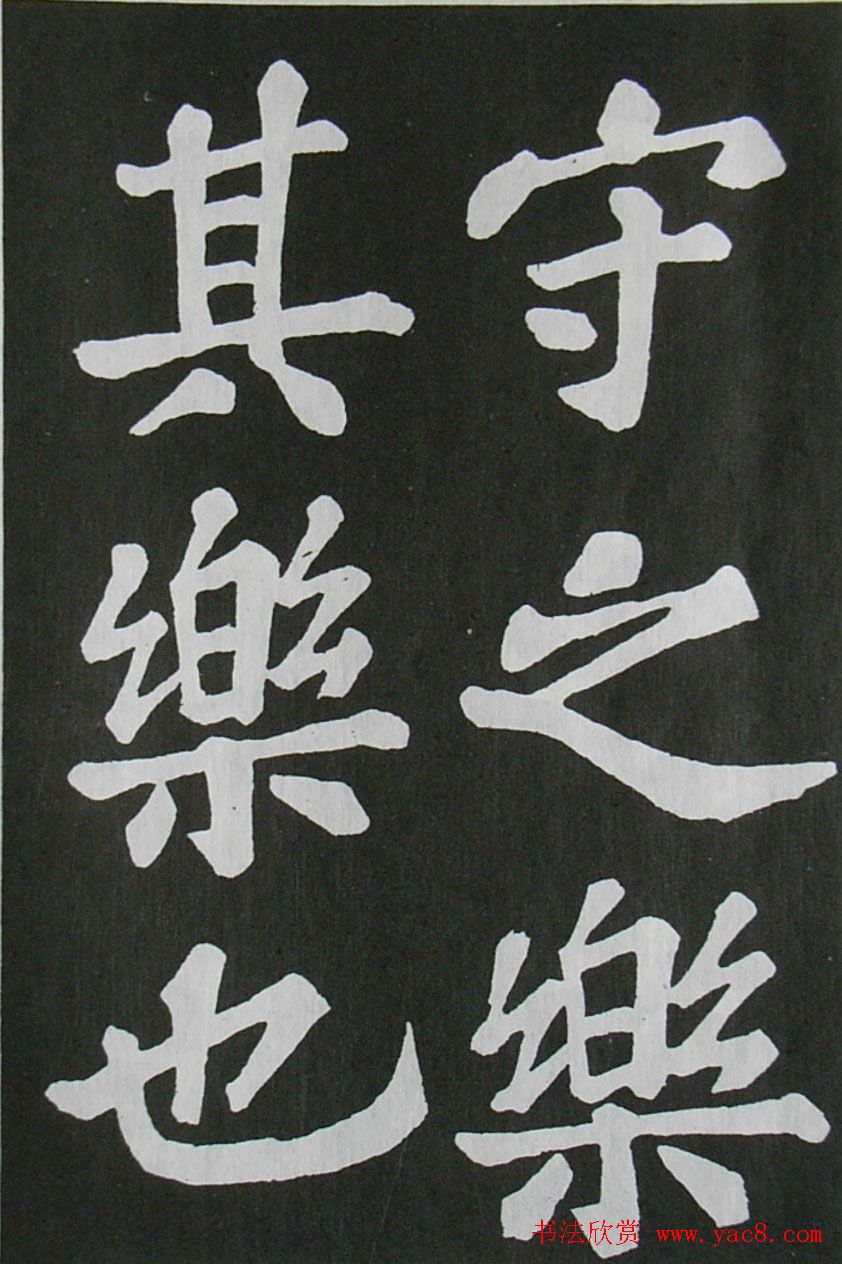 守之樂
其樂也
书法欣赏 www.yac8.com